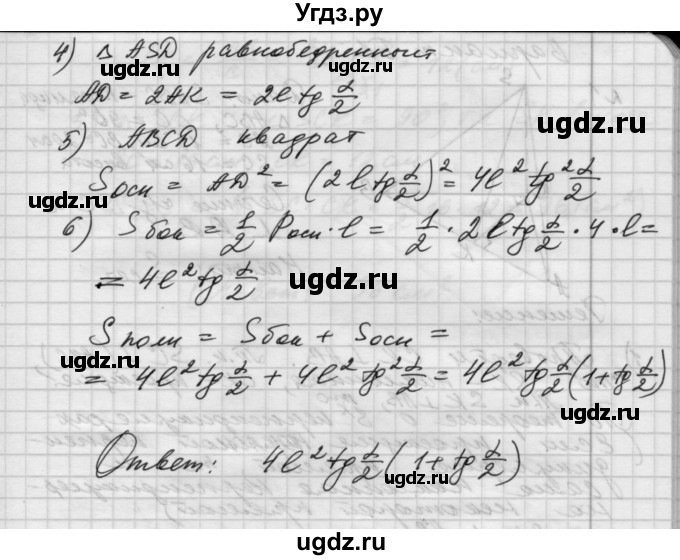 Угдз.ру
4) △ ASD равнобедренный
AD = 2AK = 2l tg α/2
5) ABCD квадрат
Sосн = AD² = (2l tg α/2)² = 4l² tg² α/2
6) Sбок = 1/2 Pосн · l = 1/2 · 2l tg α/2 · 4 · l =
= 4l² tg α/2
Sполн = Sбок + Sосн =
= 4l² tg α/2 + 4l² tg² α/2 = 4l² tg α/2 (1 + tg α/2)
Ответ: 4l² tg α/2 (1 + tg α/2)
ugdz.ru
ugdz.ru
ugdz.ru
ugdz.ru
ugdz.ru
ugdz.ru
ugdz.ru
ugdz.ru
ugdz.ru
ugdz.ru
ugdz.ru